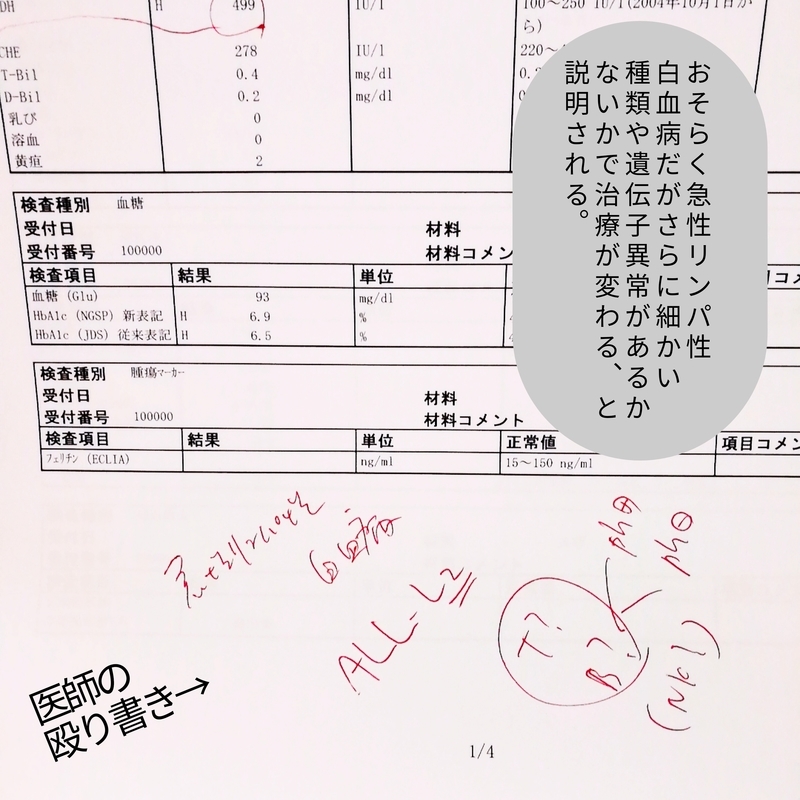 DH H 499 IU/l 100~250 IU/l(2004年10月1日か
ら)
CHE 278 IU/l 220~
T-Bil 0.4 mg/dl 0.
D-Bil 0.2 mg/dl 0.
乳び 0
溶血 0
黄疸 2
おそらく急性リンパ性
白血病だがさらに細かい
種類や遺伝子異常があるか
ないかで治療が変わる、と
説明される。
検査種別 血糖
受付日 材料
受付番号 100000 材料コメン
検査項目 結果 単位
血糖 (Glu) 93 mg/dl
HbA1c (NGSP) 新表記 H 6.9 %
HbA1c (JDS) 従来表記 H 6.5 %
検査種別 腫瘍マーカー
受付日 材料
受付番号 100000 材料コメント
検査項目 結果 単位 正常値 項目コメン
フェリチン (ECLIA) ng/ml 15~150 ng/ml
急性リンパ性
白血病
ALL-L2
T?
B?
ph⊕
ph⊖
(NK?)
医師の
殴り書き→
1/4